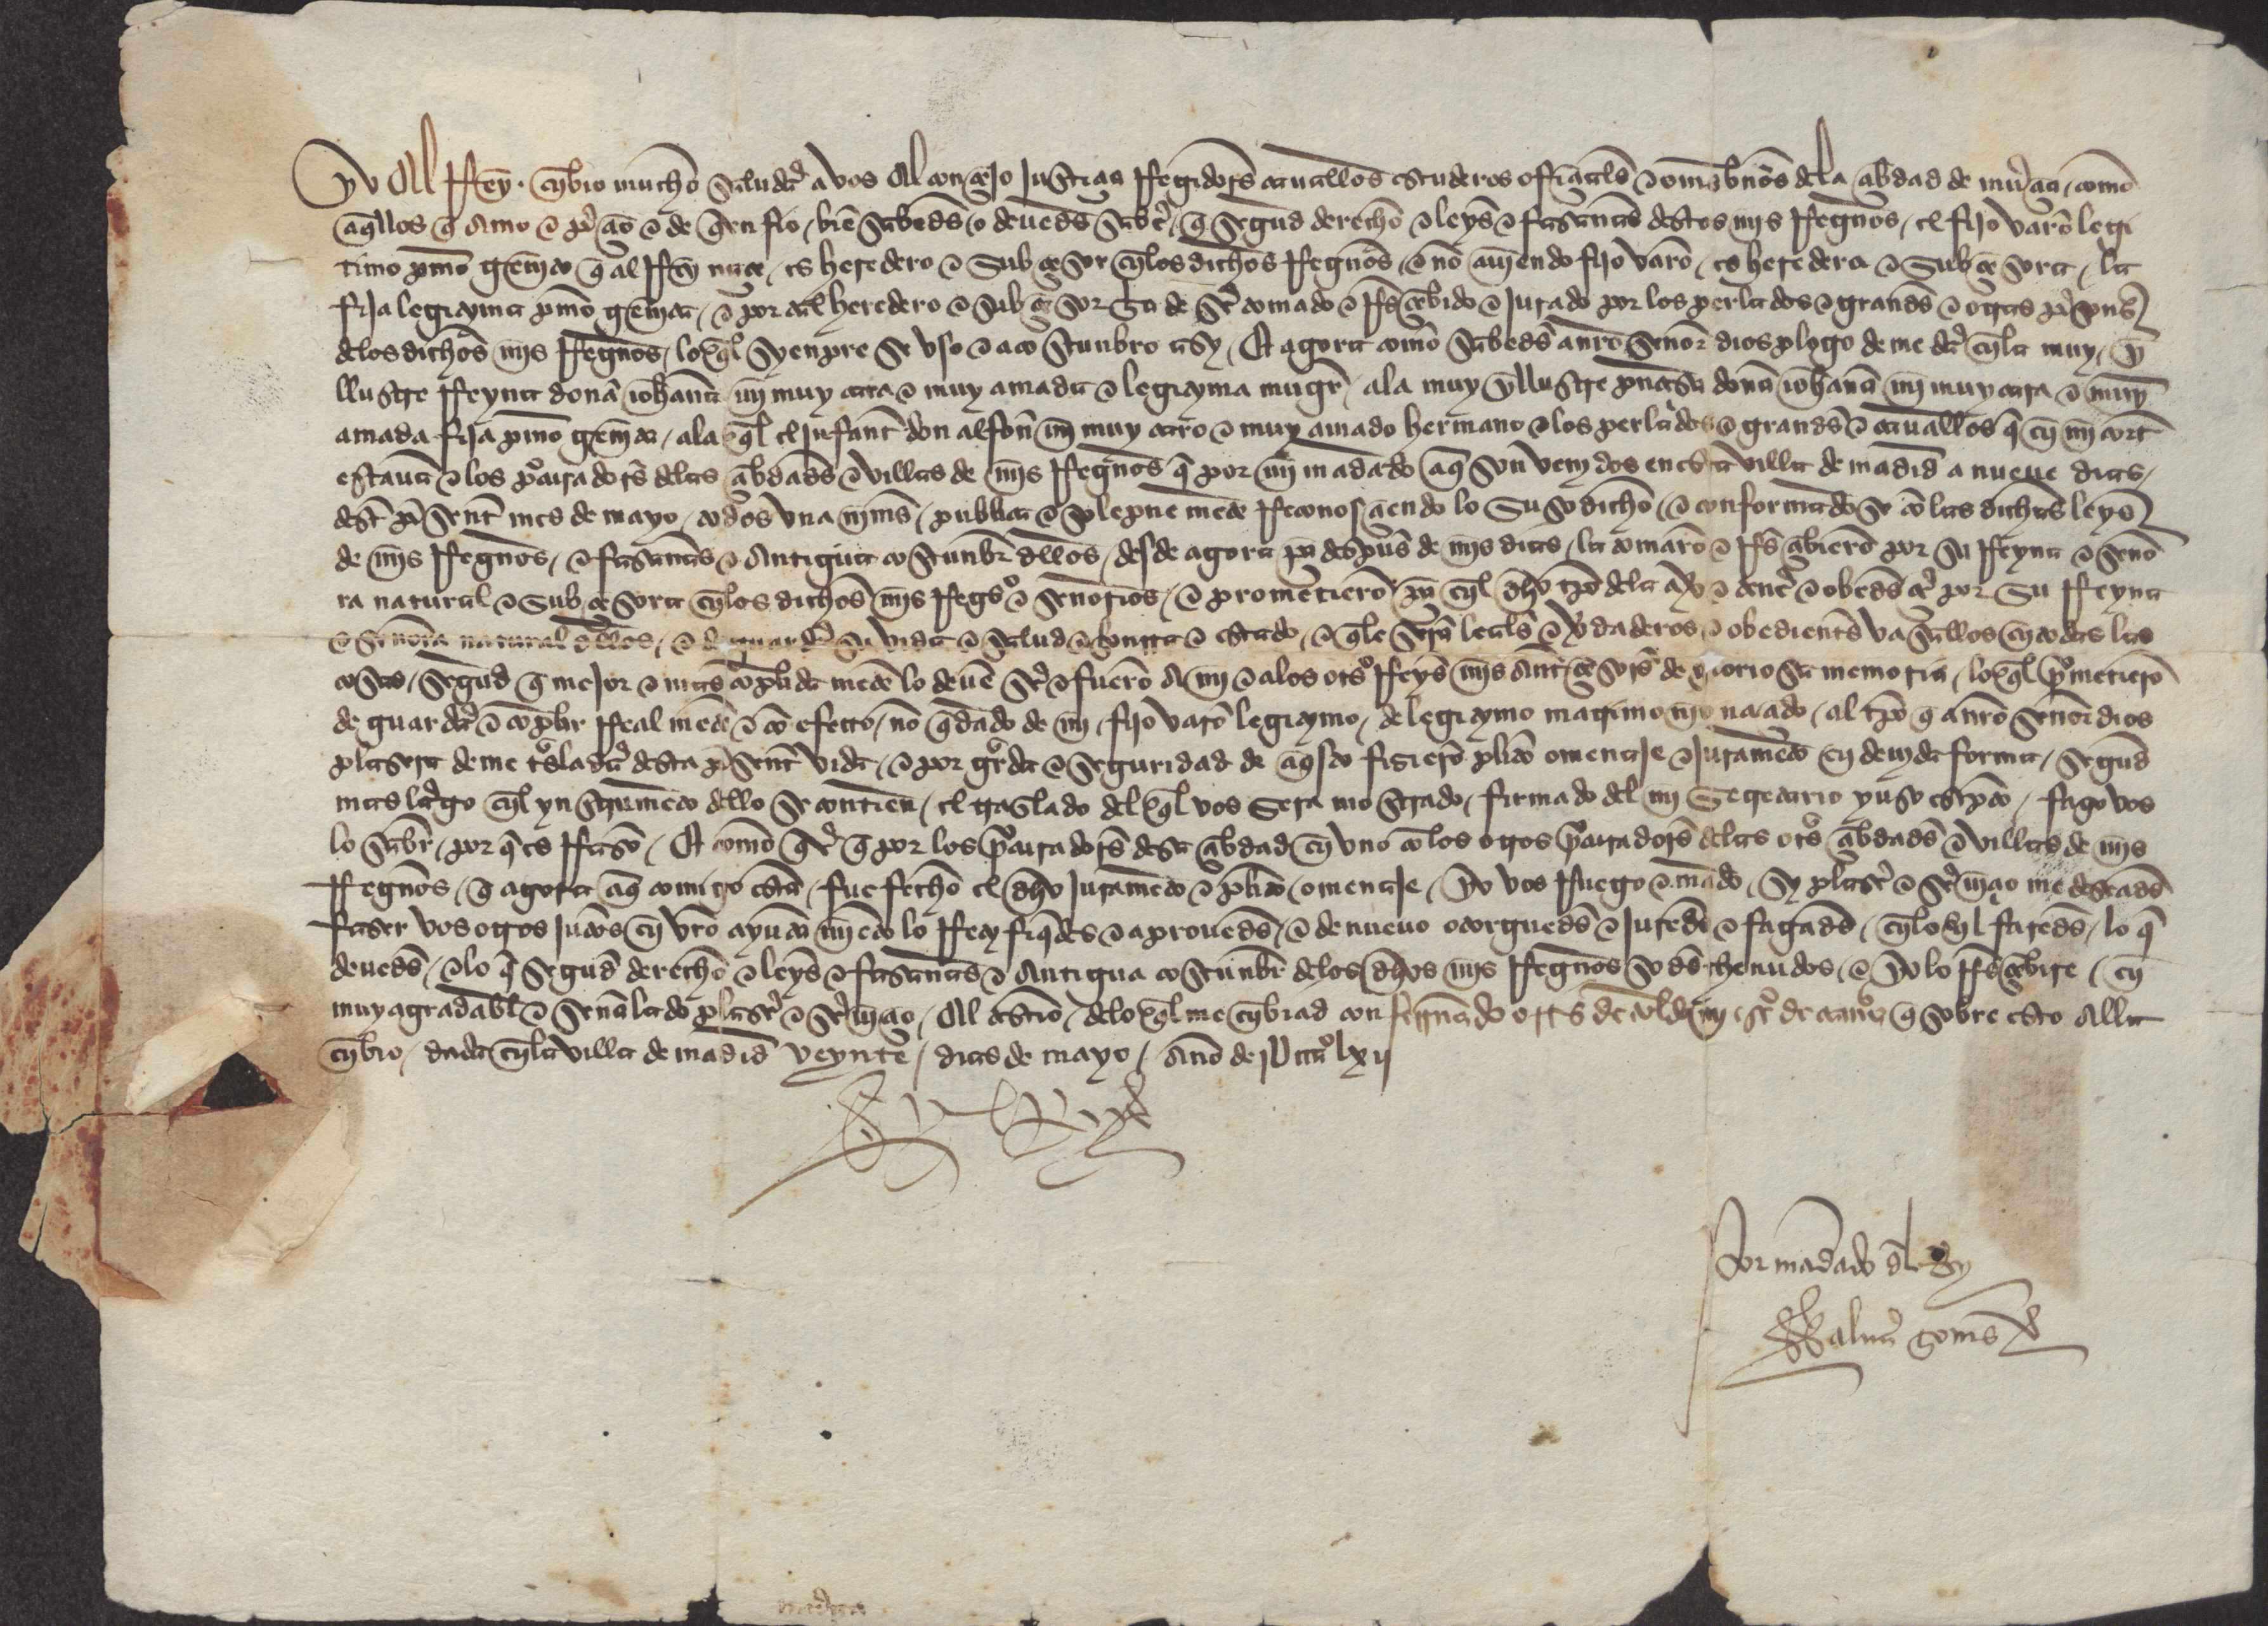 Yo el Rey. enbio mucho saludar a vos el conçejo justiçia Regidores caualleros escuderos ofiçiales e omes bnos dela çibdad de murçia, como
aqllos q amo e preçio e de qen fio, bien sabedes o deuedes saber, q segud derecho e leyes e fasannas destos mis Regnos, el fijo varo legi
timo pmo genito q al Rey naçe, es heredero e subçesor en los dichos Regnos, e no auiendo fijo varo, es heredera e subçesora, la
fija legityma pmo genita, e por tal heredero e subçesor ha de ser tomado e Resçebido e jurado por los perlados e grandes e otras psonas
delos dichos mis Regnos, lo ql syenpre se vso e acostunbro asy, Et agora como sabedes a nro sennor dios plogo de me dar en la muy, y
llustre Reyna donna iohana mi muy cara e muy amada e legityma muger, ala muy yllustre prinçesa donna iohana mi muy cara e muy
amada fija pmo genita, ala ql el infante don alfonso mi muy caro e muy amado hermano e los perlados e grandes e caualleros q en mi corte
estaua e los procuradores delas çibdades e villas de mis Regnos q por mi madado aq son venidos en esta villa de madrid a nueue dias,
deste presente mes de mayo, todos vnanimes, publica e solepnemete Reconosçiendo lo suso dicho, e conformadose co las dichas leyes
de mis Regnos, e fasannas e antigua costunbre dellos, desde agora pa despues de mis dias, la tomaro e Resçibiero por su Reyna e senno
ra natural e subçesora en los dichos mis Regnos e sennorios, e prometiero pa en el dho tpo dela aver e tener e obedesçer por su Reyna
e sennora natural dellos, e de guardar su vida e salud e honrra e estado, e q le sera leales e vdaderos e obedientes vasallos en todas las
cosas, segud q mejor e mas coplidamete lo deue ser e fuero a mi e alos otros Reyes mis anteçesores de gloriosa memoria, lo ql prometiero
de guardar e coplir Realmete e co efecto, no qdado de mi, fijo varo legitymo, de legitymo matrimonio naçido, al tpo q a nro sennor dios
plasera de me trasladar desta presente vida, e por guarda e seguridad de aqsto fisiero plito omenaje e juramento en deuida forma, segud
mas largo en el ynstrumento dello se contiene, el traslado del ql vos sera mostrado, firmado del mi secretario yuso escpto, fago vos
lo saber, por q es Rason, Et como qer q por los procuradores desa çibdad en vno co los otros procuradores delas otras çibdades e villas de mis
Regnos, q agora aq comigo esta, fue fecho el dho juramento e plito omenaje, yo vos Ruego e mado, sy plaser e seruiçio me deseades
faser vos otros jutos en vro ayuntamiento lo Retyfiqdes e aprouedes, e de nueuo otorguedes e juredes e fagades, en lo ql faredes, lo q
deuedes, e lo q segud derecho e leyes e fasannas e antigua costunbre delos dhos mis Regnos sodes thenudos, e yo lo Resçebire, en
muy agradable e sennalado plaser e seruiçio, El testimo, delo ql me enbiad con ferrnado ortis de mi q sobre esto alla
enbio, dada en la villa de madrid veynte, dias de mayo, anno de lxii
Yo el Rey
Por madado del Rey
Aluar gomes
murçia